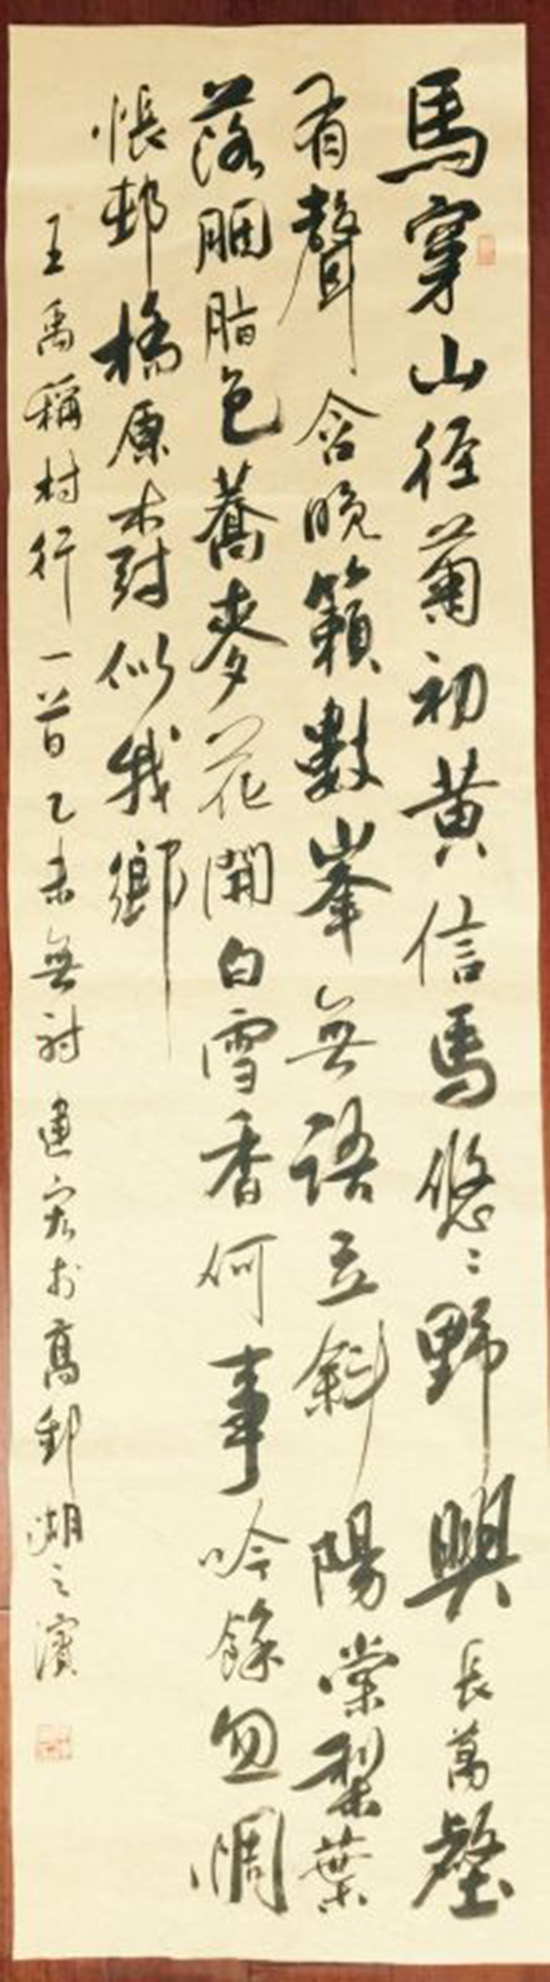 馬穿山徑菊初黄信馬悠〻野興長萬壑
有聲含晚籟數峯無語立斜陽棠梨葉
落胭脂色蕎麥花開白雪香何事吟餘忽惆
悵邨橋原樹似我鄉
王禹稱村行一首乙未無射建宏扵高郵湖之濱